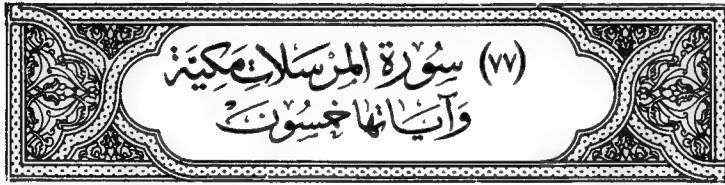 (٧٧) سُورَة المرْسَلاتِ مَكيَّة
وَآيَانها خمسُون